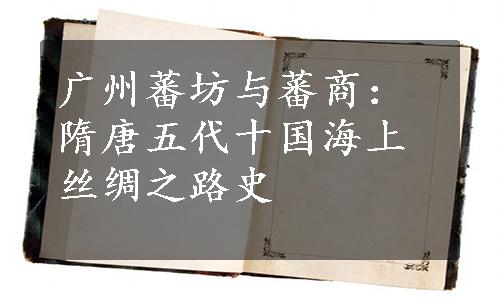 广州蕃坊与蕃商：
隋唐五代十国海上
丝绸之路史